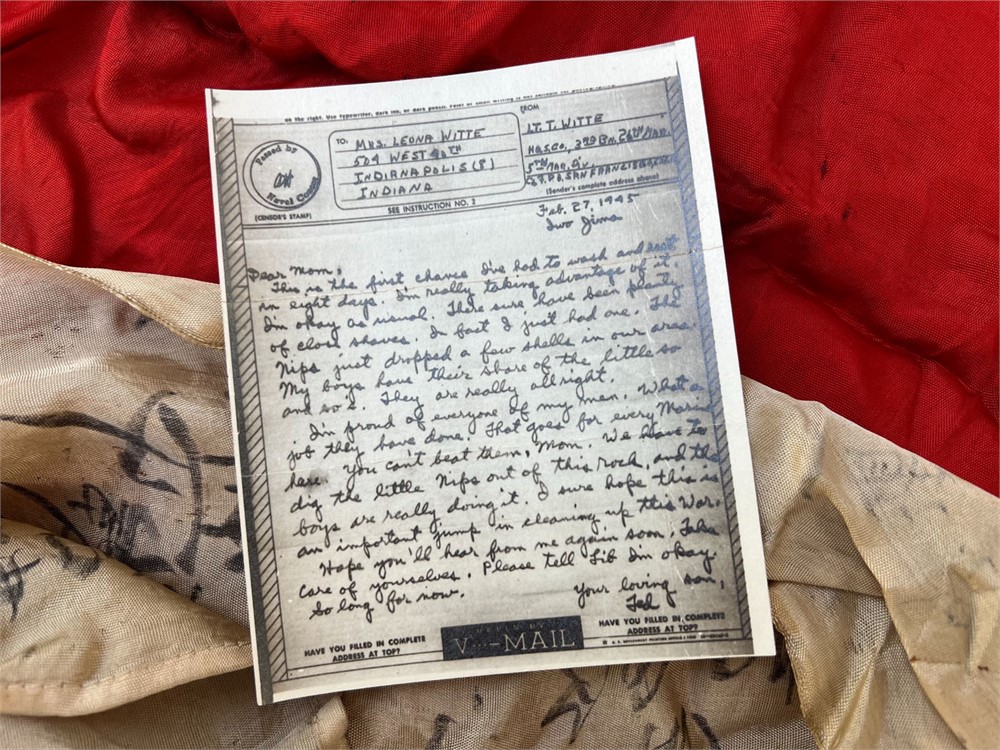 on the right. Use typewriter, dark ink, or dark pencil. Faint or small writing is not suitable for photographing.
Passed by
Naval Censor
(CENSOR'S STAMP)
TO:
MRS. LEONA WITTE
504 WEST 40TH
INDIANAPOLIS (8)
INDIANA
SEE INSTRUCTION NO. 2
FROM
LT. T. WITTE
HQ.SCO., 3RD BN. 26TH MAR.
5TH MAR. DIV.
F.P.O. SAN FRANCISCO, CAL.
(Sender's complete address above)
Feb. 27, 1945
Iwo Jima
Dear Mom,
This is the first chance I've had to wash and rest
in eight days. I'm really taking advantage of it.
I'm okay as usual. There sure have been plenty
of close shaves. In fact I just had one. The
Nips just dropped a few shells in our area.
My boys have their share of the little so
and so's. They are really all right.
I'm proud of everyone of my men. What a
job they have done. That goes for every Marine
here. You can't beat them, Mom. We have to
dig the little Nips out of this rock, and the
boys are really doing it. I sure hope this is
an important jump in cleaning up this War.
Hope you'll hear from me again soon. Take
care of yourselves. Please tell Lib I'm okay.
So long for now.
Your loving son,
Ted
HAVE YOU FILLED IN COMPLETE
ADDRESS AT TOP?
V···-MAIL
HAVE YOU FILLED IN COMPLETE
ADDRESS AT TOP?